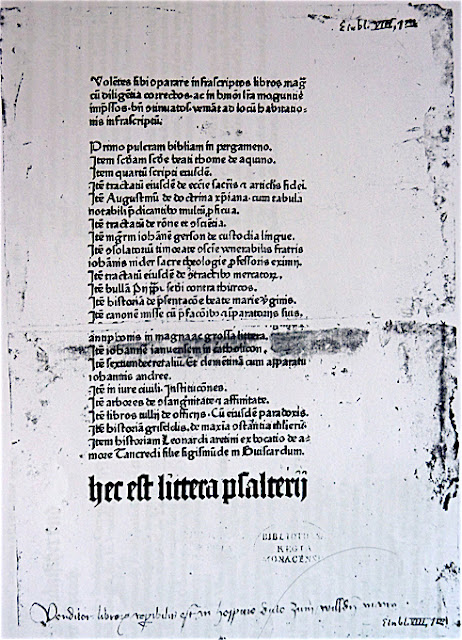 Einbl. VIII, 1 m
Volētes sibi ↄparare infrascriptos libros mag̅
cū diligētia correctos. ac in hm̄oi lr̄a mogūtie
imp̄ssos. bn̄ ↄtinuatos. veniāt ad locū habitatio-
nis infrascriptū.
Primo pulcram bibliam in pergameno.
Item scd̄am scd̄e beati thome de aquino.
Item quartū scripti eiusdē.
Itē tractatū eiusdē de ecc̄ie sacr̄is ⁊ articlis fidei.
Itē Augustinū de doctrina xp̄iana. cum tabula
notabili p̄dicantibus multū ꝓficua.
Itē tractatū de rōne et ↄsciētia.
Itē mgr̄m iohānē gerson de custodia lingue.
Itē ↄsolatoriū timorate ↄsciē venerabilis fratris
iohānis nider sacre theologie ꝓfessoris eximij.
Itē tractatū eiusdē de ↄtractibus mercatoꝝ.
Itē bullā pij pp̄e scd̄i contra thurcos.
Itē historiā de p̄sentacōe beate marie v̄ginis.
Itē canonē misse cū p̄facōibus ⁊ p̄paratorijs suis.
antiphonis in magna ac grossa littera.
Itē iohannē ianuensem in catholicon.
Itē sextum decretaliū. Et clemētinā cum apparatu
iohannis andree.
Itē in iure ciuili. Institucōnes.
Itē arbores de ↄsanguinitate ⁊ affinitate.
Itē libros tullij de officijs. Cū eiusdē paradoxis.
Itē historiā griseldis. de maxīa ↄstantia mulierū.
Item historiam Leonardi aretini ex bocatio de a-
more Tancredi filie sigismūde in Guiscardum.
hec est littera psalterij
BIBLIOTHECA
REGIA
MONACENSIS
Venditor librorum repertibilis est in hospicio dicto zum willden mann
Einbl. VIII, 1 m